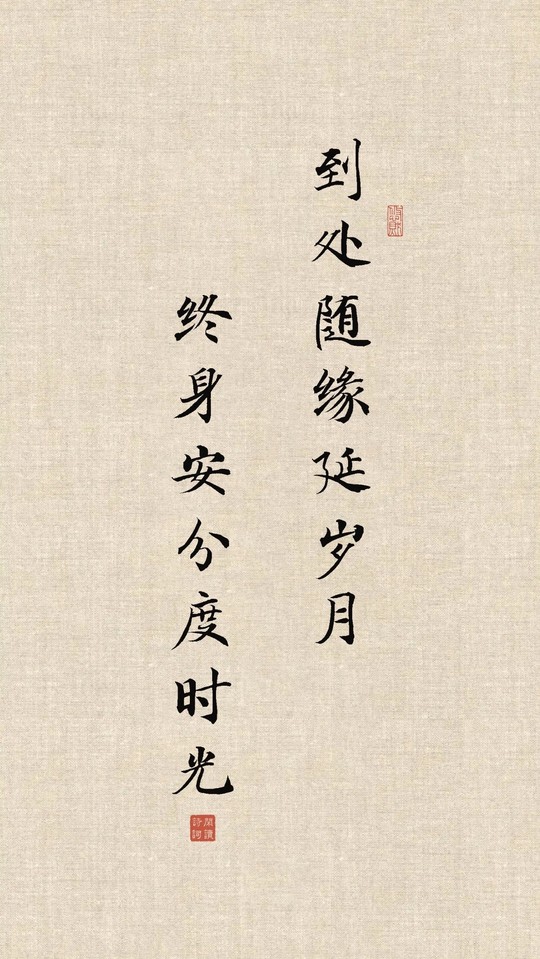 到处随缘延岁月
终身安分度时光
閒讀
詩詞